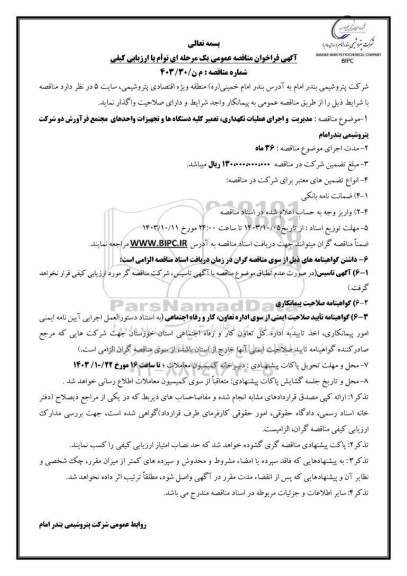 شرکت پتروشیمی بندر امام
BANDAR IMAM PETROCHEMICAL COMPANY
BIPC
بسمه تعالی
آگهی فراخوان مناقصه عمومی یک مرحله ای توأم با ارزیابی کیفی
شماره مناقصه : م ن/۴۰۳/۳۰
شرکت پتروشیمی بندر امام به آدرس بندر امام خمینی(ره) منطقه ویژه اقتصادی پتروشیمی، سایت ۵ در نظر دارد مناقصه
با شرایط ذیل را از طریق مناقصه عمومی به پیمانکار واجد شرایط و دارای صلاحیت واگذار نماید.
۱-موضوع مناقصه : مدیریت و اجرای عملیات نگهداری، تعمیر کلیه دستگاه ها و تجهیزات واحدهای مجتمع فرآورش دو شرکت
پتروشیمی بندرامام
۲-مدت اجرای موضوع مناقصه : ۳۶ ماه
۳-مبلغ تضمین شرکت در مناقصه ۱۳۰،۰۰۰،۰۰۰،۰۰۰ ریال میباشد.
۴-انواع تضمین های معتبر برای شرکت در مناقصه:
۴-۱) ضمانت نامه بانکی
۴-۲) واریز وجه به حساب اعلام شده در اسناد مناقصه
۵-مهلت توزیع اسناد : از تاریخ ۱۴۰۳/۱۰/۰۵ تا ساعت ۲۴:۰۰ مورخ ۱۴۰۳/۱۰/۱۱
ضمناً مناقصه گران میتوانند جهت دریافت اسناد مناقصه به آدرس WWW.BIPC.IR مراجعه نمایند.
۶- داشتن گواهینامه های ذیل از سوی مناقصه گران در زمان دریافت اسناد مناقصه الزامی است:
۶-۱) آگهی تاسیس(در صورت عدم انطباق موضوع مناقصه با آگهی تاسیس، شرکت مناقصه گر مورد ارزیابی کیفی قرار نخواهد
گرفت.)
۶-۲) گواهینامه صلاحیت پیمانکاری
۶-۳) گواهینامه تأیید صلاحیت ایمنی از سوی اداره تعاون، کار و رفاه اجتماعی (به استناد دستورالعمل اجرایی آیین نامه ایمنی
امور پیمانکاری، اخذ تاییدیه اداره کل تعاون کار و رفاه اجتماعی استان خوزستان جهت شرکت هایی که مرجع
صادرکننده گواهینامه تایید صلاحیت ایمنی آنها خارج از استان باشد، از سوی مناقصه گران الزامی است.)
۷-محل و مهلت تحویل پاکات پیشنهادی : دبیرخانه کمیسیون معاملات ؛ تا ساعت ۱۶ مورخ ۱۴۰۳/۱۰/۲۲
۸-محل و تاریخ جلسه گشایش پاکات پیشنهادی: متعاقباً از سوی کمیسیون معاملات اطلاع رسانی خواهد شد .
تذکر۱: ارائه کپی مصدق قراردادهای مشابه انجام شده و مفاصاحساب های ذیربط که در یکی از مراجع ذیصلاح (دفتر
خانه اسناد رسمی، دادگاه حقوقی، امور حقوقی کارفرمای طرف قرارداد)گواهی شده است، جهت بررسی مدارک
ارزیابی کیفی مناقصه گران، الزامیست.
تذکر۲: پاکت پیشنهادی مناقصه گری گشوده خواهد شد که حد نصاب امتیاز ارزیابی کیفی را کسب نمایند.
تذکر۳: به پیشنهادهایی که فاقد سپرده یا امضاء مشروط و مخدوش و سپرده های کمتر از میزان مقرر، چک شخصی و
نظایر آن و پیشنهادهایی که پس از انقضاء مدت مقرر در آگهی واصل شود، مطلقاً ترتیب اثر داده نخواهد شد.
تذکر۴: سایر اطلاعات و جزئیات مربوطه در اسناد مناقصه مندرج می باشد.
روابط عمومی شرکت پتروشیمی بندر امام